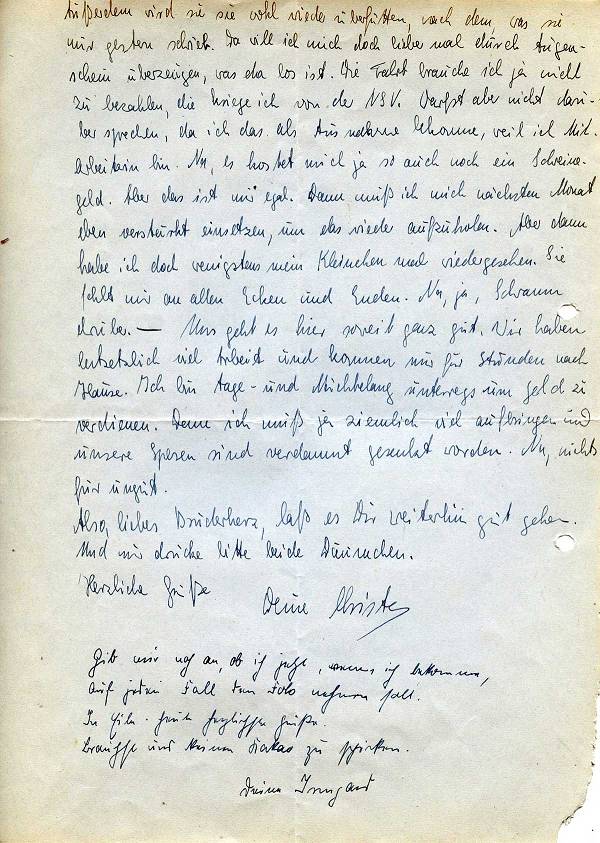 Außerdem wird sie sie wohl wieder überfüttern, nach dem, was sie
mir gestern schrieb. Da will ich mich doch lieber mal durch Augen-
schein überzeugen, was da los ist. Die Fahrt brauche ich ja nicht
zu bezahlen, die kriege ich von der NSV. Darfst aber nicht darü-
ber sprechen, da ich das als Ausnahme bekomme, weil ich Mit-
arbeiterin bin. Na, es kostet mich ja so auch noch ein Schweine-
geld. Aber das ist mir egal. Dann muß ich mich nächsten Monat
eben verstärkt einsetzen, um das wieder aufzuholen. Aber dann
habe ich doch wenigstens mein Kleinchen mal wiedergesehen. Sie
fehlt mir an allen Ecken und Enden. Na, ja, Schwamm
drüber. — Uns geht es hier soweit ganz gut. Wir haben
entsetzlich viel Arbeit und kommen nur für Stunden nach
Hause. Ich bin tage- und nächtelang unterwegs um Geld zu
verdienen. Denn ich muß ja ziemlich viel aufbringen und
unsere Spesen sind verdammt gesenkt worden. Na, nichts
für ungut.
Also, liebes Bruderherz, laß es Dir weiterhin gut gehen.
Und mir drücke bitte beide Däumchen.
Herzliche Grüße
Deine Christel
Gib mir noch an, ob ich jetzt, wenns ich bekomme,
auf jeden Fall den Foto nehmen soll.
In Eile - herzlichste Grüße.
Brauchst und keinen zu schicken.
Deine Irmgard